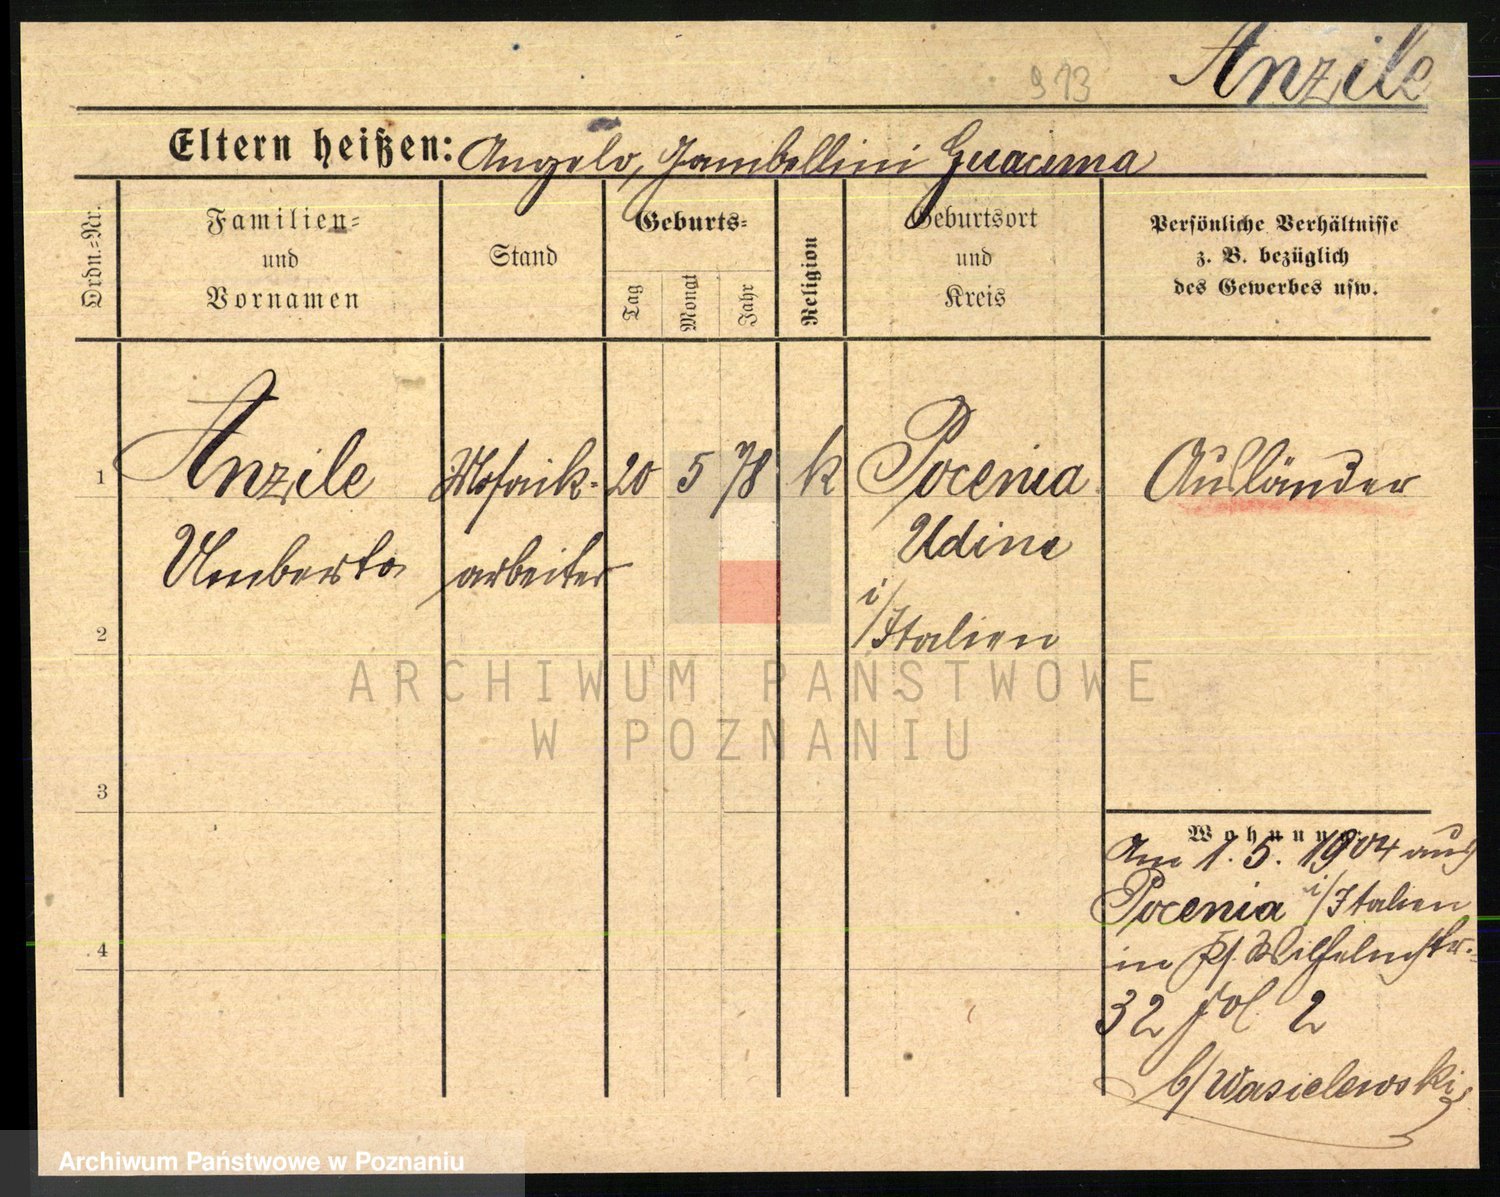 Anzile
913
Eltern heißen: Angelo, Jambellini Guacuma
Ordn.-Nr.
Familien-
und
Vornamen
Stand
Geburts-
Tag
Monat
Jahr
Religion
Geburtsort
und
Kreis
Persönliche Verhältnisse
z. B. bezüglich
des Gewerbes usw.
1
Anzile
Umberto
Mosaik-
arbeiter
20 5 78
k
Pocenia
Udine
i/Italien
Ausländer
2
3
4
Wohnung
Am 1. 5. 1904 aus
Pocenia i/Italien
in Wilhelmstr.
32 2
b/Wasielewski
ARCHIWUM PAŃSTWOWE
W POZNANIU
Archiwum Państwowe w Poznaniu